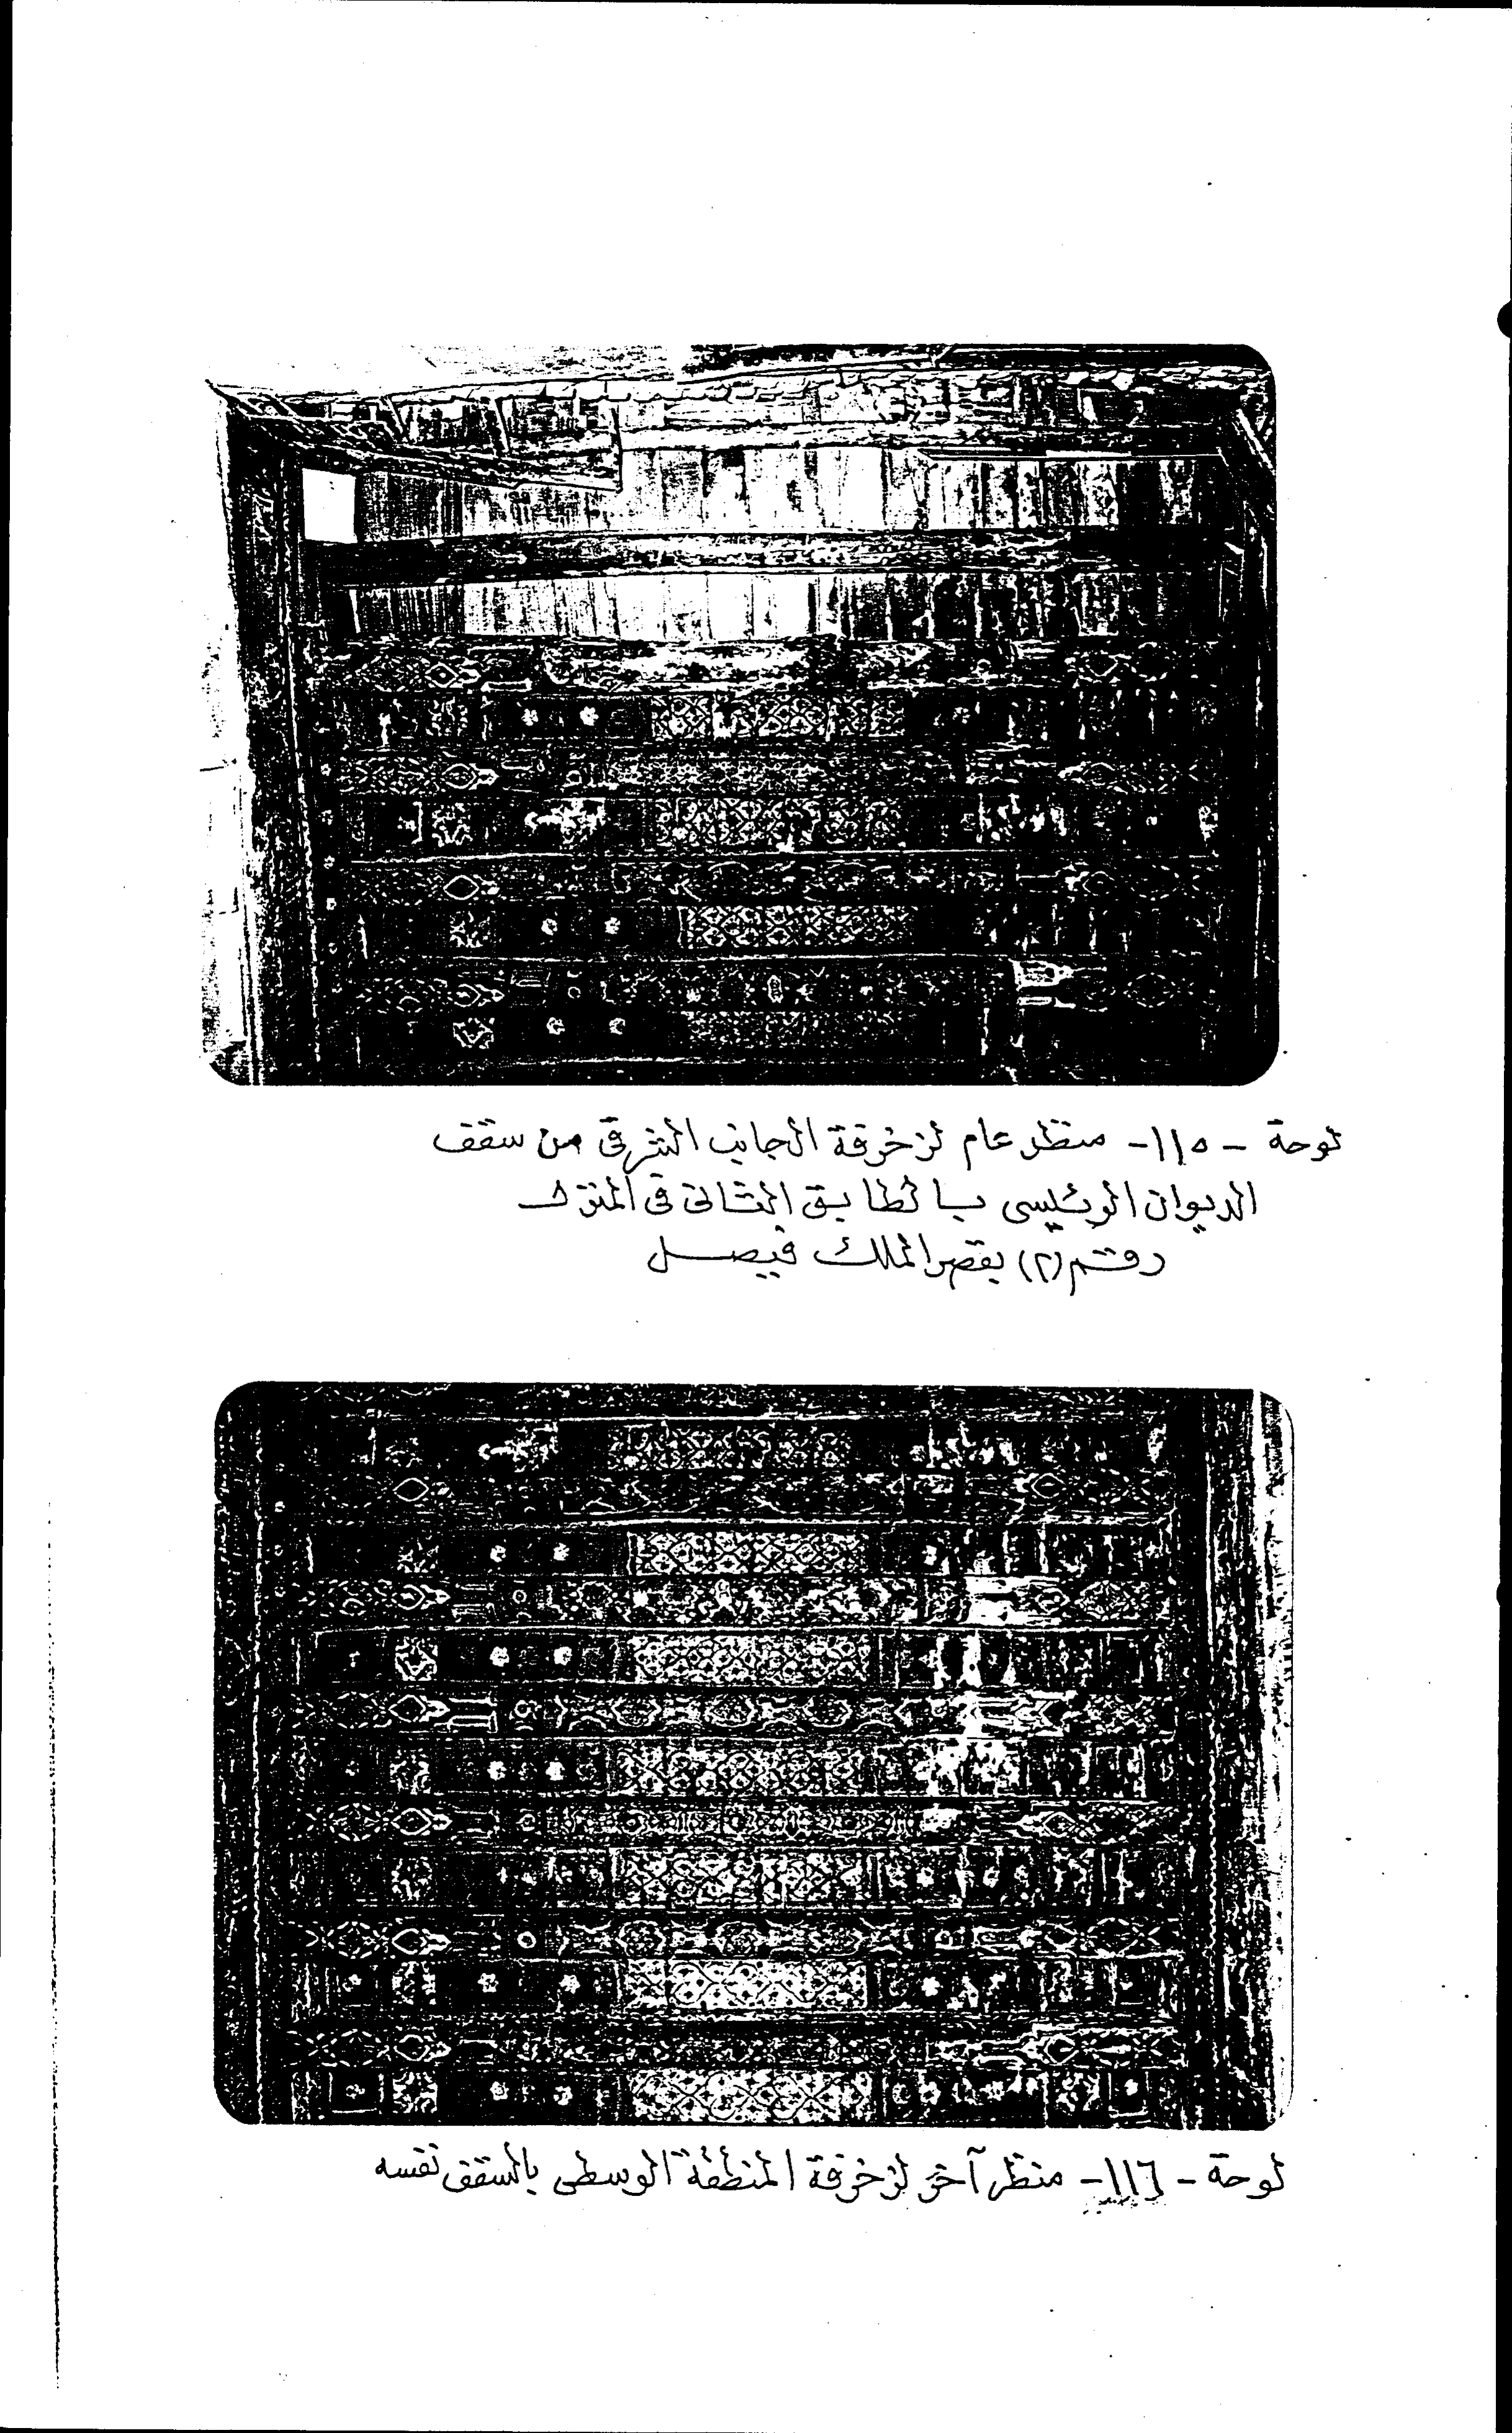 لوحة - ١١٥- منظر عام لزخرفة الجانب الشرقى من سقف
الديوان الرئيسى بالطابق الثانى فى المنزل
رقم (٢) بقصر الملك فيصل
لوحة - ١١٦- منظر آخر لزخرفة المنطقة الوسطى بالسقف نفسه